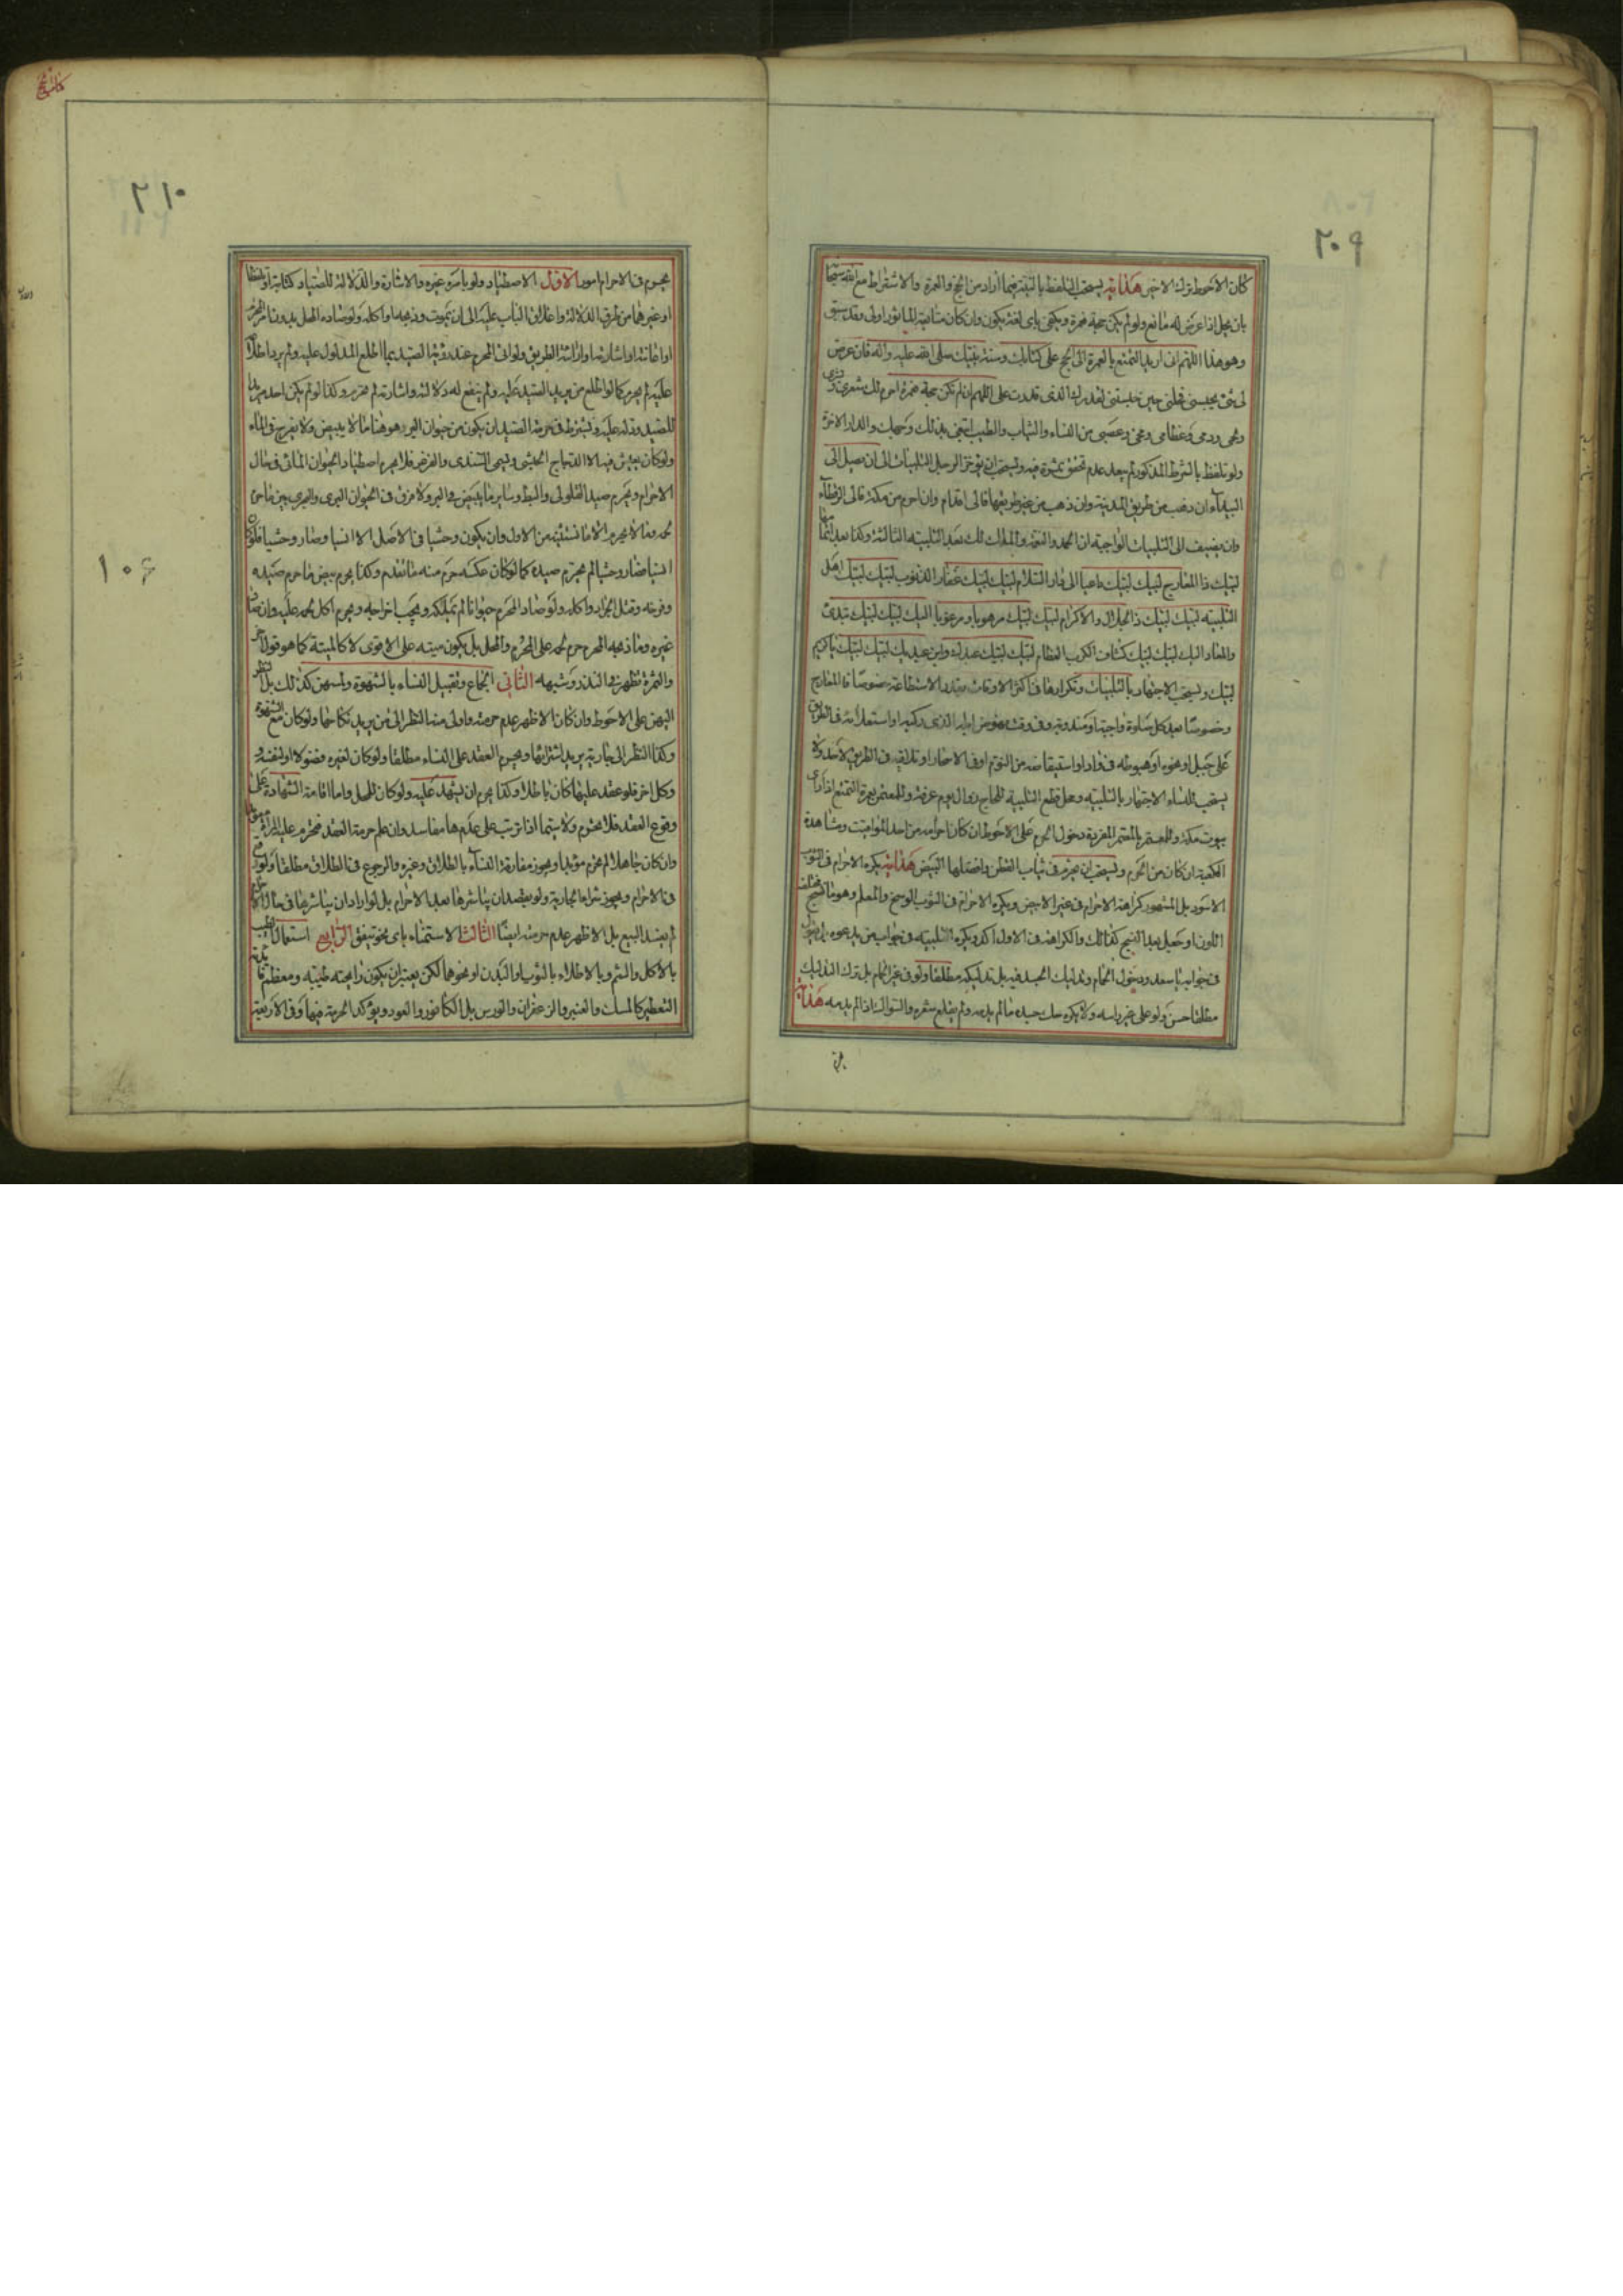 ٢٠٩
كان الاحوط ترك الاخير هداية يستحب التلفظ بالنية فيما اراد من الحج والعمرة والاشتراط مع الله سبحانه
بان يحل اذا عرض له مانع ولو لم يكن حجة فعمرة ويكفى باى لغة يكون وان كان متابعة المأثور اولى وقد سبق
وهو هذا اللهم انى اريد التمتع بالعمرة الى الحج على كتابك وسنة نبيك صلى الله عليه واله فان عرض
لى شئ يحبسنى فحلنى حيث حبستنى لقدرك الذى قدرت على اللهم ان لم تكن حجة فعمرة احرم لك شعرى وبشرى
ولحمى ودمى وعظامى ومخى وعصبى من النساء والثياب والطيب ابتغى بذلك وجهك والدار الاخرة
ولو تلفظ بالشرط المذكور لم يبعد عدم تحقق ثمرة فيه ويستحب ان يؤخر الرجل التلبيات الى ان يصل الى
البيداء ان ذهب من طريق المدينة وان ذهب من غير طريقها فالى اقدام وان احرم من مكة فالى الرقطاء
وان يضيف الى التلبيات الواجبة ان الحمد والنعمة والملك لك بعد التلبية الثالثة وكذا بعد اتمامها
لبيك ذا المعارج لبيك لبيك داعيا الى دار السلام لبيك لبيك غفار الذنوب لبيك لبيك اهل
التلبية لبيك لبيك ذا الجلال والاكرام لبيك لبيك مرهوبا ومرغوبا اليك لبيك لبيك تبدئ
والمعاد اليك لبيك لبيك كشاف الكرب العظام لبيك لبيك عبدك وابن عبديك لبيك لبيك يا كريم
لبيك ويستحب الاجتهار بالتلبيات وتكرارها فى اكثر الاوقات بقدر الاستطاعة خصوصا ذا المعارج
وخصوصا بعد كل صلوة واجبة او مندوبة وفى وقت نهوض ابله الذى ركبه او استعلائه فى الطريق
على جبل او نحوه او هبوطه فى واد او استيقاضه من النوم او فى الاسحار او تلاقيه فى الطريق لاحد ولا
يستحب للنساء الاجتهار بالتلبية ومحل قطع التلبية للحاج زوال يوم عرفة وللمعتمر بعمرة التمتع اذا راى
بيوت مكة وللمعتمر بالعمرة المفردة دخول الحرم على الاحوط ان كان احرامه من احد المواقيت ومشاهدة
الكعبة ان كان من الحرم ويستحب ان يحرم فى ثياب القطن وافضلها البيض هداية يكره الاحرام فى الثوب
الاسود بل المشهور كراهة الاحرام فى غير الابيض ويكره الاحرام فى الثوب الوسخ والمعلم وهو ما نسج مختلف
اللون او جعل بعد النسج كذلك والكراهة فى الاول اكد ويكره التلبية فى جواب من يدعوه بل يقول
فى جوابه يا سعد ودخول الحمام وتدليك الجسد فيه بل تدليكه مطلقا ولو فى غير الحمام بل ترك التدليك
مطلقا حسن ولو على غير راسه ولا يكره حك جسده ما لم يدمه ولم يقلع شعره والسواك اذا لم يدمه هداية
٢١٠
يحرم فى الاحرام امور الاول الاصطياد ولو بامره غيره والاشارة والدلالة للصياد كتابة او لفظا
او غيرها من طرق الدلالة واغلاق الباب عليه الى ان يموت وذبحه واكله ولو صاده المحل بدون امر المحرم
او اعانته او اشارته او ارائة الطريق ولو اتى المحرم عند رؤية الصيد بما اطلع المدلول عليه ولم يرد اطلاعه
عليه لم يحرم كما لو اطلع من يريد الصيد عليه ولم ينفع له دلالته واشارته لم يحرم وكذا لو لم يكن احد مريدا
للصيد ودله عليه ويشترط فى حرمة الصيد ان يكون من حيوان البر وهو هنا ما لا يبيض ولا يفرخ فى الماء
ولو كان يعيش فيه الا الدجاج الحبشى ويسمى السندى والغرغر فلا يحرم اصطياد الحيوان المائى فى حال
الاحرام ويحرم صيد القلولى والبط وساير ما يبيض فى البر ولا فرق فى الحيوان البرى والبحرى بين ما حرم
لحمه وما لا يحرم الا ما نستثنيه من الاول وان يكون وحشيا فى الاصل لا انسيا وصار وحشيا فلو كان
انسيا فصار وحشيا لم يحرم صيده كما لو كان عكسه حرم منه ما تقدم وكذا يحرم بيض ما حرم صيده
وفرخه وقتل الجراد واكله ولو صاد المحرم حيوانا لم يتملكه ويجب اخراجه ويحرم اكل لحمه عليه وان صاده
غيره وما ذبحه المحرم حرم لحمه على المحرم والمحل بل يكون ميتة على الاقوى لا كالميتة كما هو قول اخر
والثمرة تظهر فى النذر وشبهه الثانى الجماع وتقبيل النساء بالشهوة ولمسهن كذلك بل النظر
اليهن على الاحوط وان كان الاظهر عدم حرمته واولى منه النظر الى من يريد نكاحها ولو كان مع الشهوة
وكذا النظر الى جارية يريد اشترائها ويحرم العقد على النساء مطلقا ولو كان لغيره فضولا او لنفسه و
وكل اخر فلو عقد عليها كان باطلا وكذا يحرم ان يشهد عليه ولو كان للمحل واما اقامة الشهادة على
وقوع العقد فلا يحرم ولا سيما اذا ترتب على عدمها مفاسد وان علم حرمة العقد فتحرم عليه المراة مؤبدا
وان كان جاهلا لم تحرم مؤبدا ويجوز مفارقة النساء بالطلاق وغيره والرجوع فى الطلاق مطلقا ولو وقع
فى الاحرام ويجوز شراء الجارية ولو بقصد ان يباشرها بعد الاحرام بل لو اراد ان يباشرها فى حال الاحرام
لم يفسد البيع بل الاظهر عدم حرمته ايضا الثالث الاستمناء باى نحو يتفق الرابع استعمال الطيب
بالاكل والشم وبالاطلاء بالثوب او البدن او نحوهما لكن يعتبر ان يكون رايحته طيبة ومعظم فائدته
التعطير كالمسك والعنبر والزعفران والورس بل الكافور والعود ويؤكد الحرمة فيهما وفى الاربعة
١٠۶